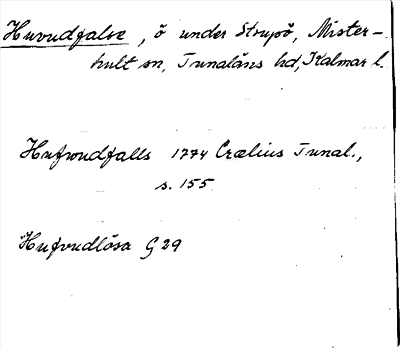 Huvudfalse, ö under Strupö, Mister-
hult sn, Tunaläns hd, Kalmar l.
Hufwudfalls 1774 Crælius Tunal.,
s. 155
Hufvudlösa G 29